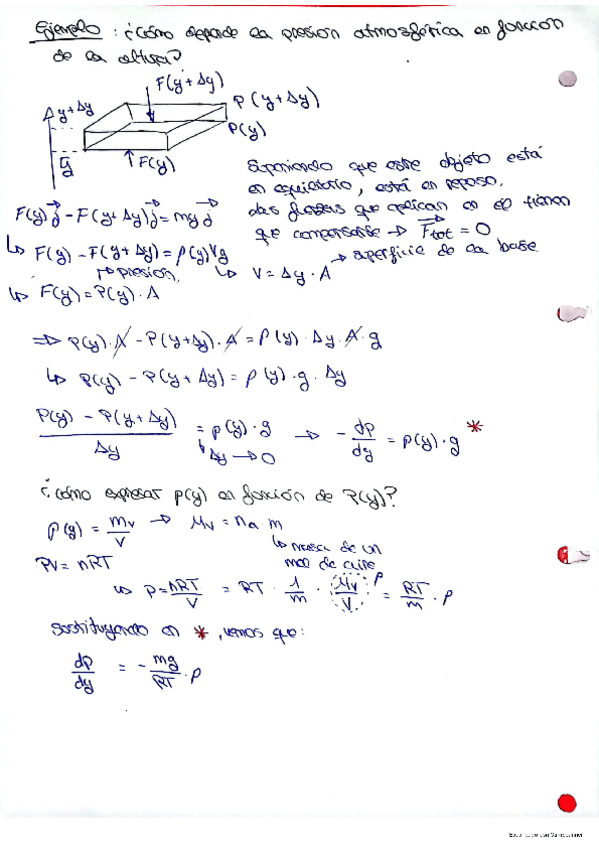 Ejemplo : ¿Cómo depende la presión atmosférica en función
de la altura?
y+Δy
F(y+Δy)
P(y+Δy)
P(y)
y
↑F(y)
Suponiendo que este objeto está
en equilibrio, está en reposo,
las fuerzas que aplican en él tienen
que compensarse → F⃗tot = 0
F(y)j⃗ - F(y+Δy)j⃗ = mg j⃗
↳ F(y) - F(y+Δy) = ρ(y)Vg
↳ V = Δy · A → superficie de la base
↱ presión.
↳ F(y) = P(y) · A
⇒ P(y)·A - P(y+Δy)·A = ρ(y) · Δy · A · g
↳ P(y) - P(y+Δy) = ρ(y) · g · Δy
P(y) - P(y+Δy) / Δy = ρ(y) · g → - dp/dy = ρ(y) · g *
↳ Δy → 0
¿cómo expresar ρ(y) en función de P(y)?
ρ(y) = Mv/V → Mv = na m
↳ masa de un
mol de aire
PV = nRT
↳ P = nRT/V = RT · 1/m · Mv/V ρ = RT/m · ρ
Sustituyendo en *, vemos que:
dp/dy = - mg/RT · P